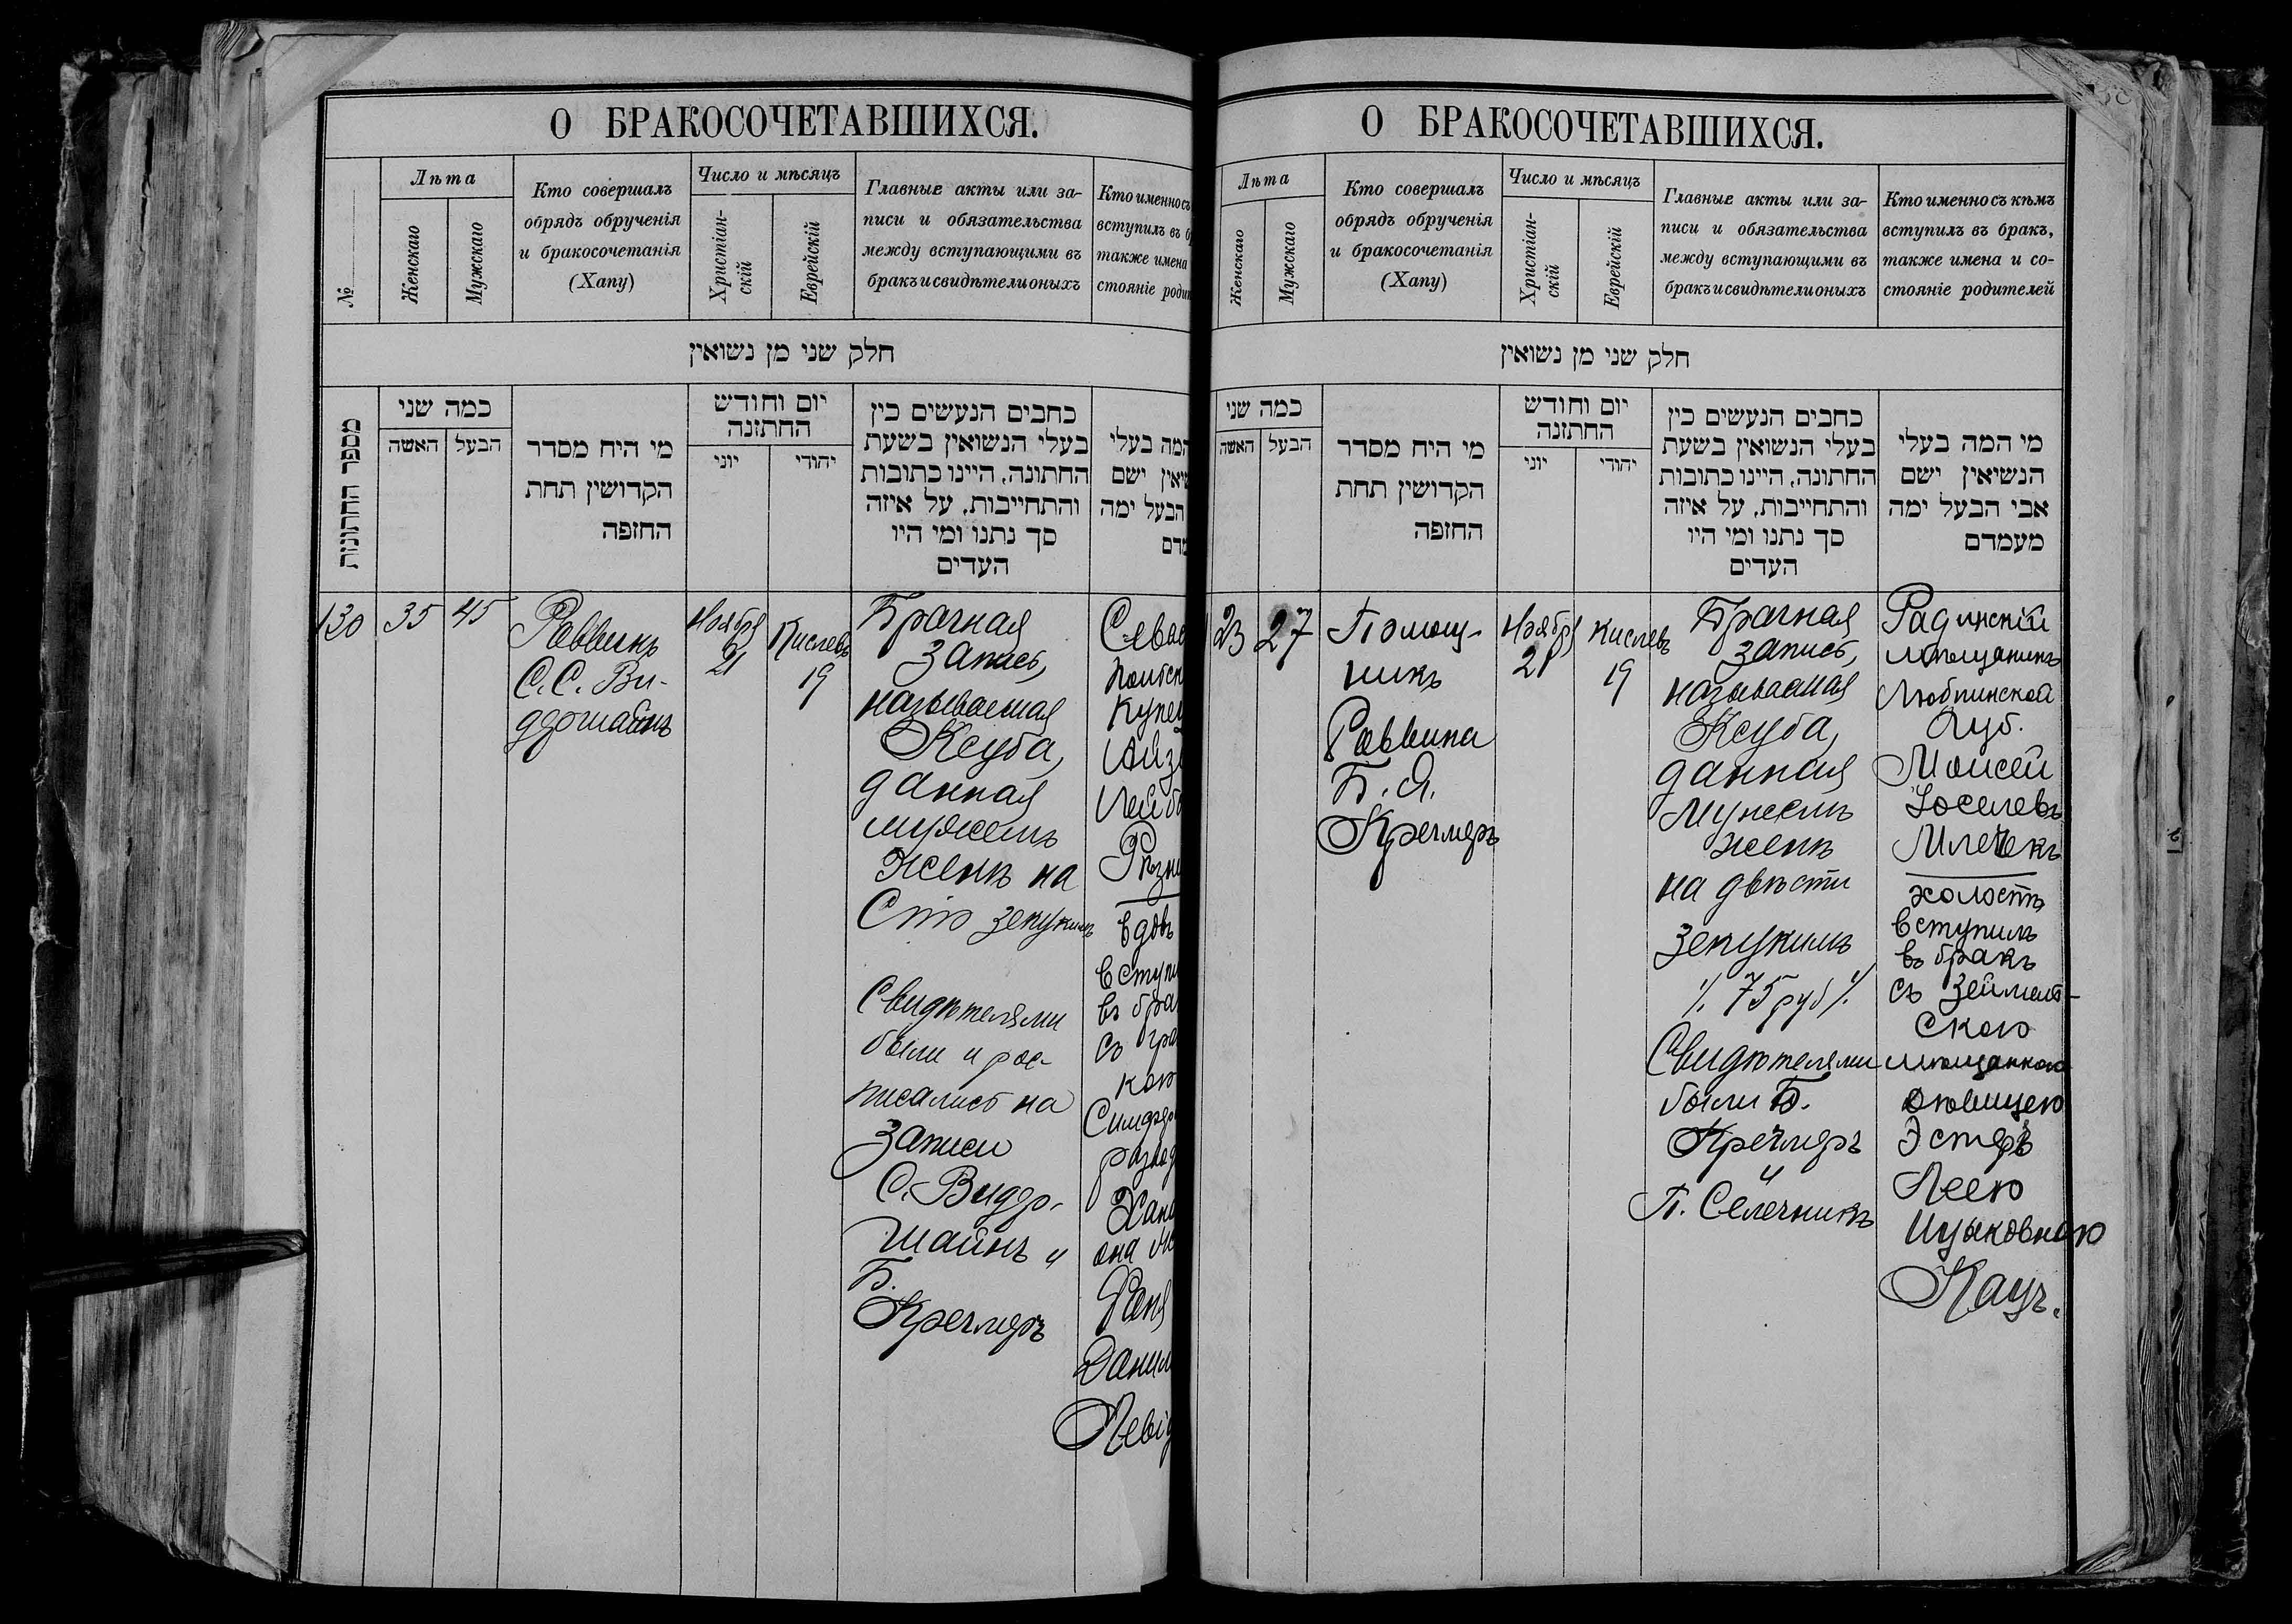 О БРАКОСОЧЕТАВШИХСЯ.
№
Лѣта
Женскаго
Мужскаго
Кто совершалъ
обрядъ обрученія
и бракосочетанія
(Хапу)
Число и мѣсяцъ
Христіан-
скій
Еврейскій
Главные акты или за-
писи и обязательства
между вступающими въ
бракъ и свидѣтели оныхъ
Кто именно съ
вступилъ въ б
также имена
стояніе роди
חלק שני מן נשואין
מספר החתונות
כמה שני
האשה
הבעל
מי היח מסדר
הקדושין תחת
החזפה
יום וחודש
החתזנה
יוני
יהודי
כחבים הנעשים כין
בעלי הנשואין בשעת
החתונה, היינו כתובות
והתחייבות, על איזה
סך נתנו ומי היו
העדים
המה בעלי
שיאין ישם
הבעל ימה
מדם
130
35
45
Раввинъ
С. С. Ви-
дершайнъ
Ноября
21
Кислевъ
19
Брачная
запись,
называемая
Ксуба,
данная
мужемъ
женѣ на
Сто зекукимъ
Свидѣтелями
были и рос-
писались на
записи
С. Видер-
шайнъ и
Б.
Кречмеръ
Севас
польск
Купец
Айз
Лейбо
Рѣзни
вдов
вступи
въ бра
съ гра
кою
Симфер
развед
Хана
она М
Фаня
Данил
Левi
О БРАКОСОЧЕТАВШИХСЯ.
Лѣта
Женскаго
Мужскаго
Кто совершалъ
обрядъ обрученія
и бракосочетанія
(Хапу)
Число и мѣсяцъ
Христіан-
скій
Еврейскій
Главные акты или за-
писи и обязательства
между вступающими въ
бракъ и свидѣтели оныхъ
Кто именно съ кѣмъ
вступилъ въ бракъ,
также имена и со-
стояніе родителей
חלק שני מן נשואין
כמה שני
האשה
הבעל
מי היח מסדר
הקדושין תחת
החזפה
יום וחודש
החתזנה
יוני
יהודי
כחבים הנעשים כין
בעלי הנשואין בשעת
החתונה, היינו כתובות
והתחייבות, על איזה
סך נתנו ומי היו
העדים
מי המה בעלי
הנשיאין ישם
אבי הבעל ימה
מעמדם
23
27
Помощ-
никъ
Раввина
Б. Я.
Кречмеръ
Ноября
21
Кислевъ
19
Брачная
запись,
называемая
Ксуба,
данная
мужемъ
женѣ
на двѣсти
зекукимъ
⁒ 75 руб ⁒
Свидѣтелями
были Б.
Кречмеръ
и
П. Селечникъ
Радинскій
мѣщанинъ
Люблинской
Губ.
Моисей
Іоселевъ
Млечекъ
холостъ
вступилъ
въ бракъ
съ Зеймель-
скою
мѣщанкою
дѣвицею
Эстеръ
Леею
Ицковною
Кацъ.